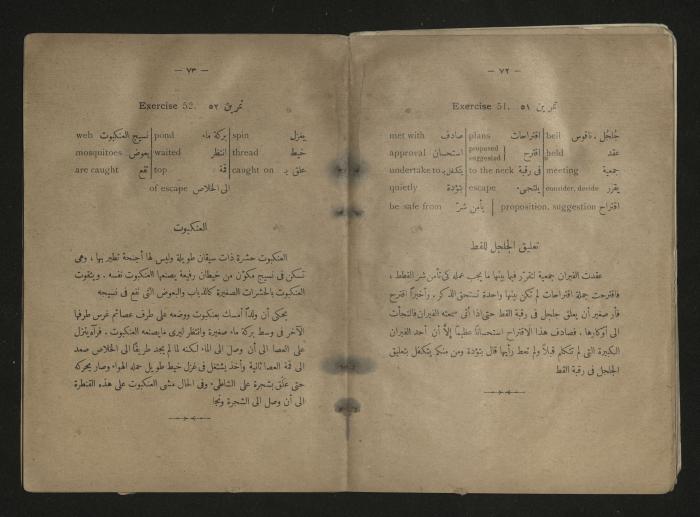 — ٧٢ —
Exercise 51. تمرين ٥١
met with صادف plans اقتراحات bell جُلجُل ـ ناقوس
approval استحسان proposed suggested اقترح held عقد
undertake to يتكفل بـ to the neck فى رقبة meeting جمعية
quietly بتؤدة escape يلتجىء consider, decide يقرر
be safe from يأمن شرّ proposition, suggestion اقتراح
تعليق الجلجل للقط
عقدت الفيران جمعية لتقرّر فيما بينها ما يجب عمله كى تأمن شر القطط ،
فاقترحت جملة اقتراحات لم تكن بينها واحدة تستحق الذكر . وأخيرًا اقترح
فأر صغير أن يعلق جلجل فى رقبة القط حتى اذا أتى سمعته الفيران فالتجأت
الى أوكارها . فصادف هذا الاقتراح استحسانًا عظيمًا إلاّ أن أحد الفيران
الكبيرة التى لم تتكلم قبلاً ولم تعط رأيها قال بتؤدة ومن منكم يتكفل بتعليق
الجلجل فى رقبة القط
— ٧٣ —
Exercise 52. تمرين ٥٢
web نسيج العنكبوت pond بركة ماء spin يغزل
mosquitoes بعوض waited انتظر thread خيط
are caught تقع top قمة caught on علق بـ
of escape الى الخلاص
العنكبوت
العنكبوت حشرة ذات سيقان طويلة وليس لها أجنحة تطير بها ، وهى
تسكن فى نسيج مكوّن من خيطان رفيعة يصنعها العنكبوت نفسه . ويتقوت
العنكبوت بالحشرات الصغيرة كالذباب والبعوض التى تقع فى نسيجه
يحكى أن ولدًا أمسك بعنكبوت ووضعه على طرف عصا ثم غرس طرفها
الآخر فى وسط بركة ماء صغيرة وانتظر ليرى ما يصنعه العنكبوت . فرآه ينزل
على العصا الى أن وصل الى الماء لكنه لما لم يجد طريقًا الى الخلاص صعد
الى قمة العصا ثانية وأخذ يشتغل فى غزل خيط طويل حمله الهواء وصار يحركه
حتى علّق بشجرة على الشاطىء وفى الحال مشى العنكبوت على هذه القنطرة
الى أن وصل الى الشجرة ونجا